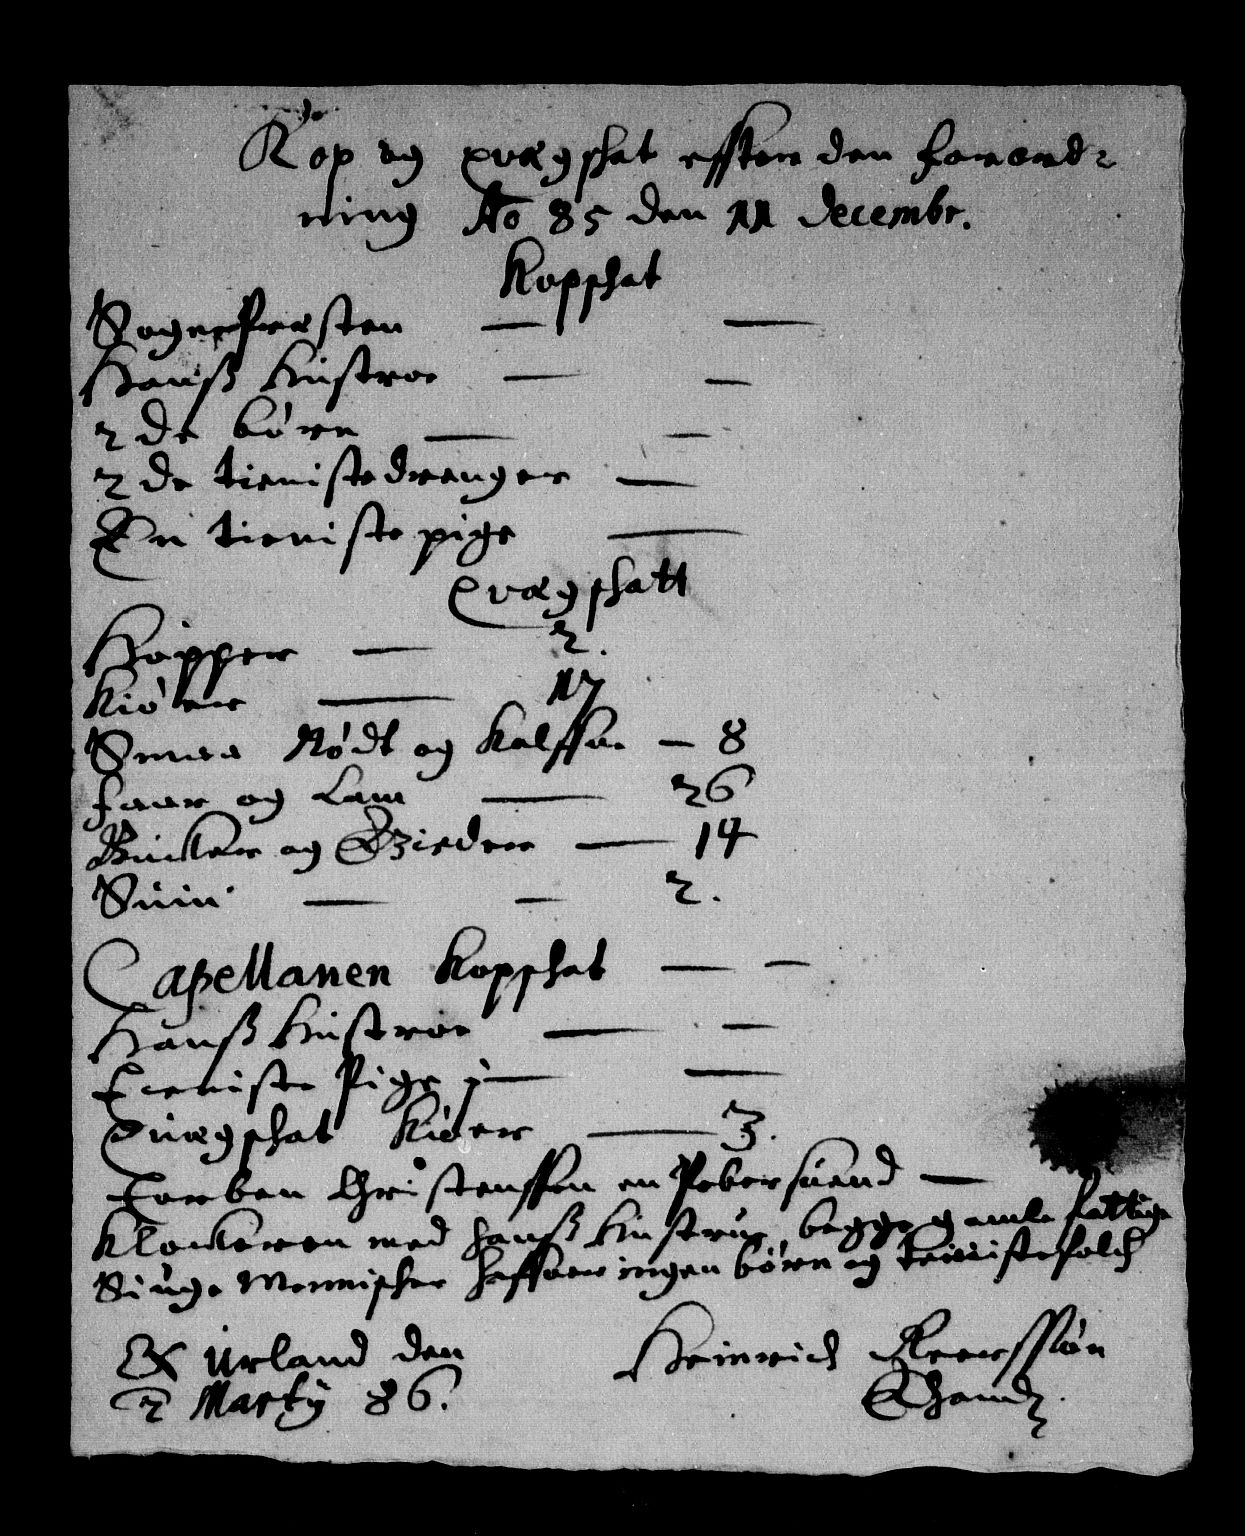 Kop og qvægskat efter den forord=
ning Ao 85 den 11 decembr.
Kopskat
SognePræsten — —
Hanß Hustroe — —
2 de børn — —
2 de tienistedrenger —
En tieniste pige —
Qvægskatt
Hopper — 2.
Kiøer — 17
Smaa Nødt og Kalffue — 8
faar og Lam — 26
Bucker og Gieder — 14
Suin — — 2.
Capellanen Kopskat — —
Hanß Hustroe — —
Tieniste Pige j — —
Quægskat Kiøer — 3.
Torben Christenssen en Pebersuend —
Klockeren med hanß Hustrue begge gamle fattige
Siuge Mennisker haffuer ingen børn og tienistefolch
Ex Urland den
2 Martij 86.
Heinrich